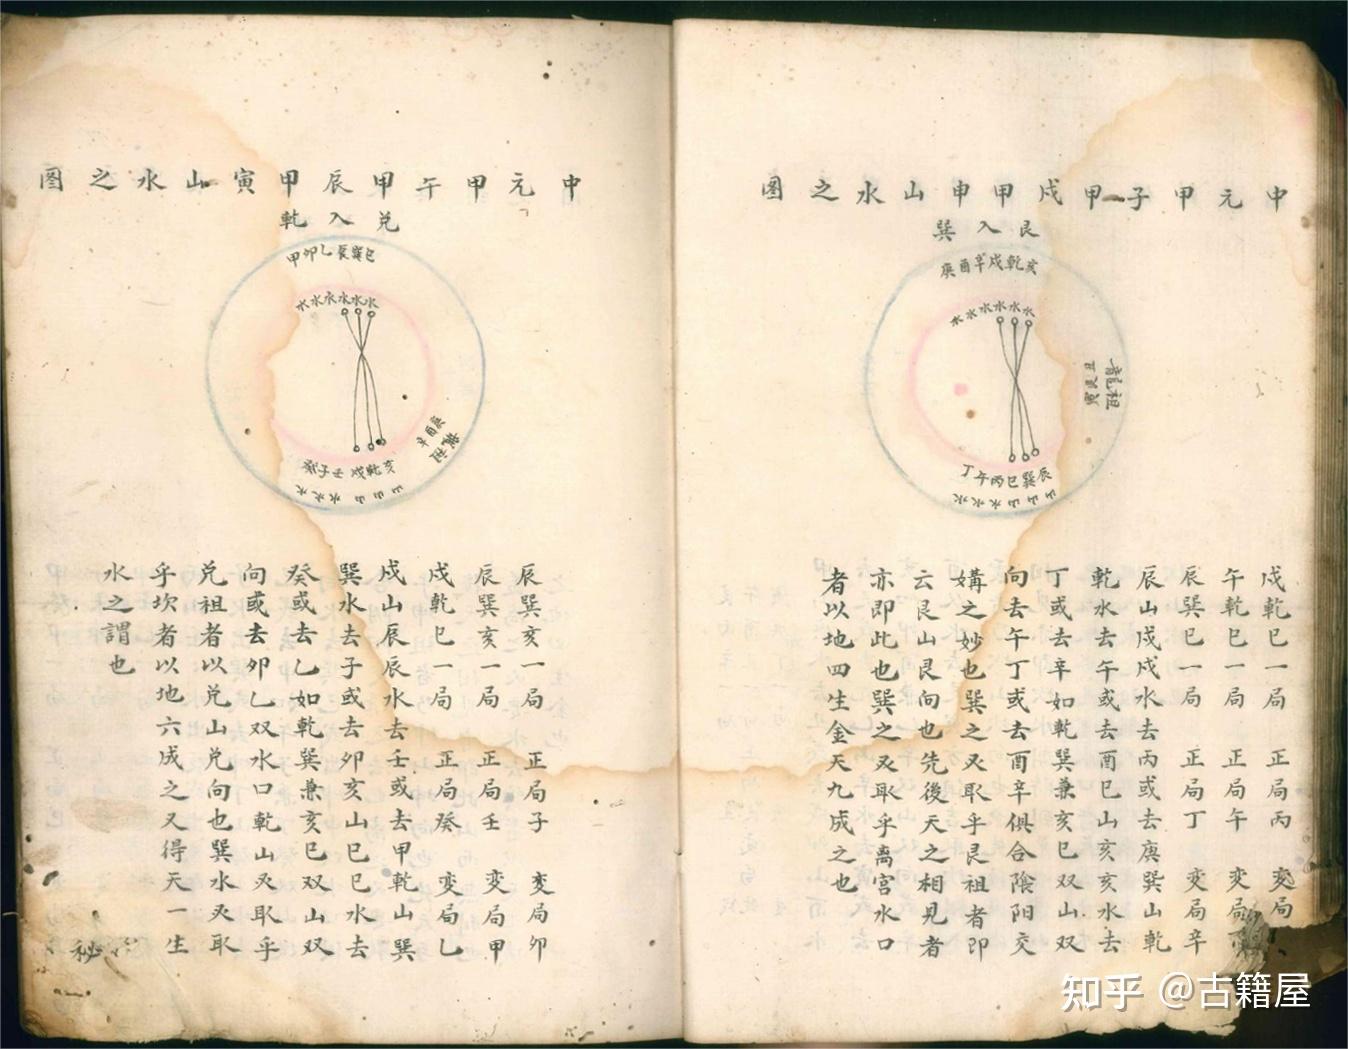 中元甲子甲戌甲申山水之图
艮入巽
亥乾戌辛酉庚
水水水水水水
龍祖
丑艮寅
辰巽巳丙午丁
山山山水水水
戌乾巳一局 正局丙 変局
午乾巳一局 正局午 変局
辰巽巳一局 正局丁 変局辛
辰山戌戌水去丙或去庚巽山乾
乾水去午或去酉巳山亥亥水去
丁或去辛如乾巽兼亥巳双山双
向去午丁或去酉辛俱合陰阳交
媾之妙也巽之又取乎艮祖者即
云艮山艮向也先後天之相見者
亦即此也巽之又取乎离宫水口
者以地四生金天九成之也
中元甲午甲辰甲寅山水之图
兑入乾
巳巽辰乙卯甲
水水水水水水
龍祖
庚酉辛
亥乾戌壬子癸
山山山水水水
辰巽亥一局 正局子 変局卯
辰巽亥一局 正局壬 変局甲
戌乾巳一局 正局癸 変局乙
戌山辰辰水去壬或去甲乾山巽
巽水去子或去卯亥山巳巳水去
癸或去乙如乾巽兼亥巳双山双
向或去卯乙双水口乾山又取乎
兑祖者以兑山兑向也巽水又取
乎坎者以地六成之又得天一生
水之謂也
秘
知乎 @古籍屋